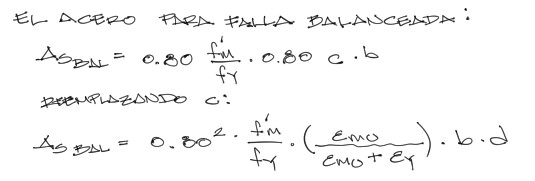 EL ACERO PARA FALLA BALANCEADA:
As BAL = 0.80 f'm/fy · 0.80 c · b
REEMPLAZANDO c:
As BAL = 0.80² · f'm/fy · (εmu/(εmu + εy)) · b · d